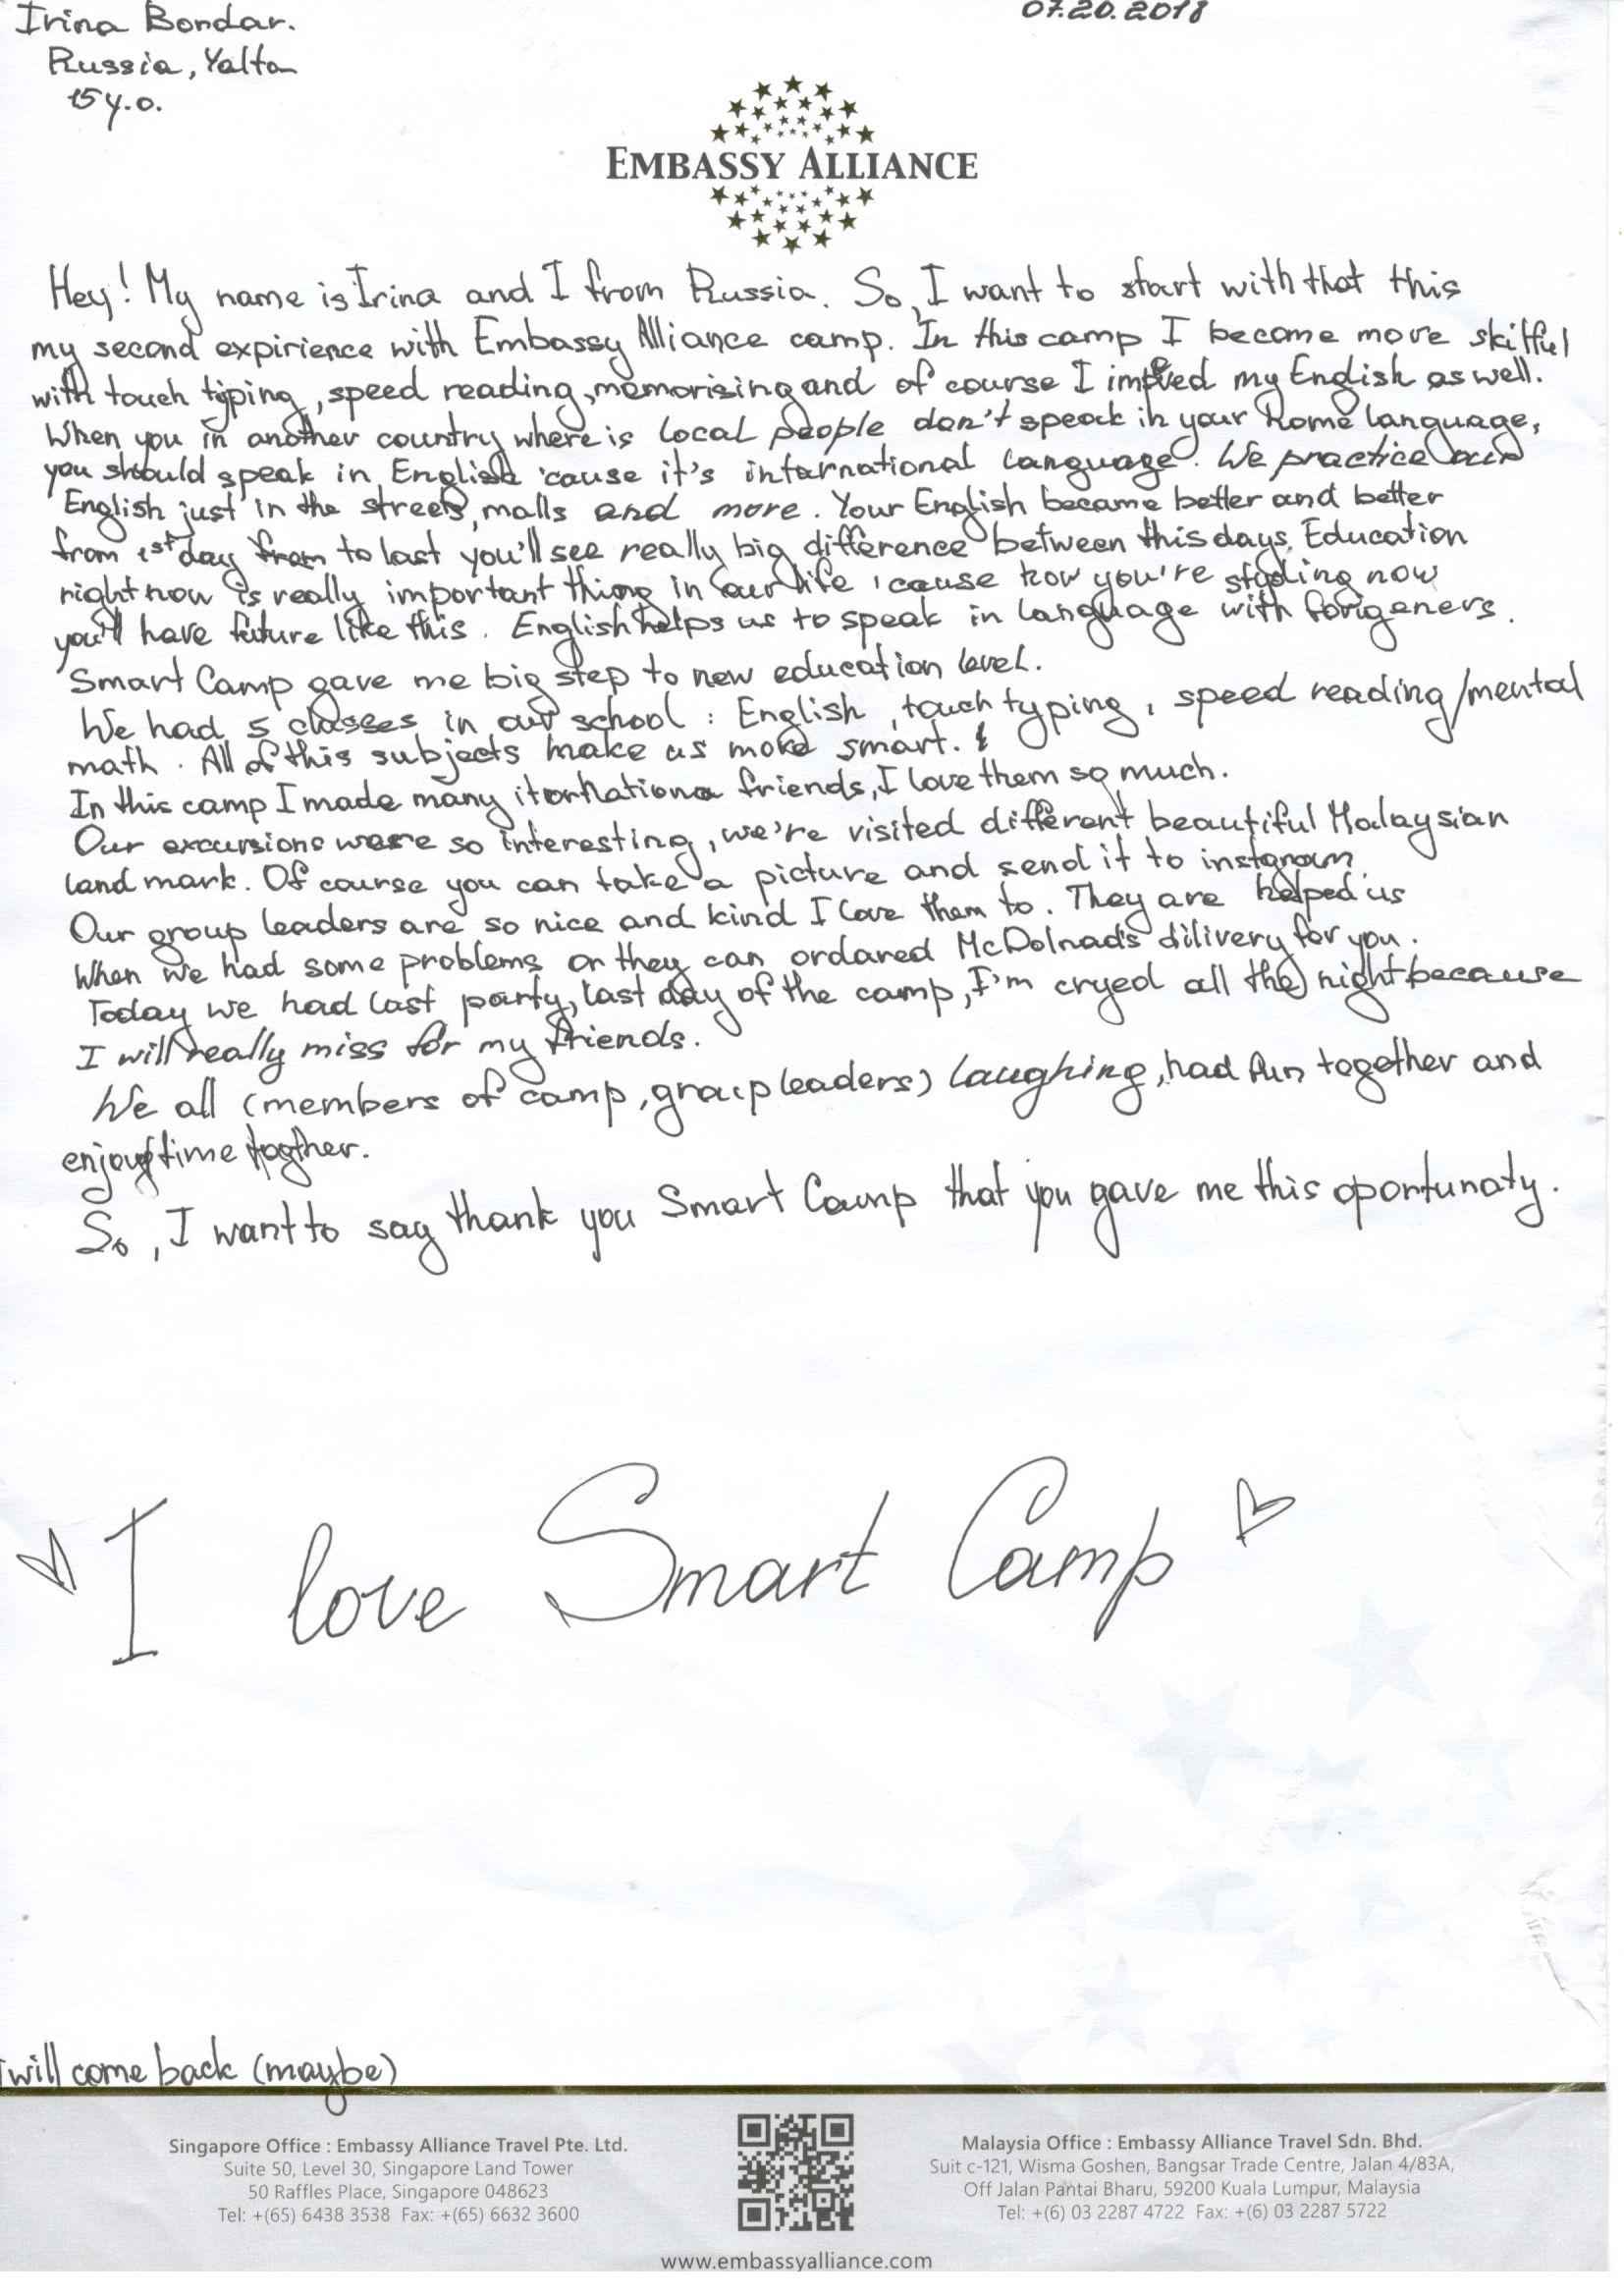 Irina Bondar.
07.20.2018
Russia, Yalta
15 y.o.
EMBASSY ALLIANCE
Hey! My name is Irina and I from Russia. So, I want to start with that this
my second expirience with Embassy Alliance camp. In this camp I become more skilful
with touch typing, speed reading, memorising and of course I impved my English as well.
When you in another country where is local people don't speak in your home language,
you should speak in English 'cause it's international language. We practice our
English just in the streets, malls and more. Your English became better and better
from 1st day from to last you'll see really big difference between this days. Education
right now is really important thing in our life 'cause how you're studing now
you'll have future like this. English helps us to speak in language with forigeners.
Smart Camp gave me big step to new education level.
We had 5 classes in our school: English, touch typing, speed reading/mental
math. All of this subjects make us more smart.
In this camp I made many friends, I love them so much.
Our excursions were so interesting, we're visited different beautiful Malaysian
land mark. Of course you can take a picture and send it to instagram
Our group leaders are so nice and kind I love them to. They are helped us
When we had some problems or they can ordared McDolnad's dilivery for you.
Today we had last party, last day of the camp, I'm cryed all the night because
I will really miss for my friends.
We all (members of camp, group leaders) laughing, had fun together and
enjoy time togther.
So, I want to say thank you Smart Camp that you gave me this oportunaty.
I love Smart Camp
I will come back (maybe)
Singapore Office : Embassy Alliance Travel Pte. Ltd.
Suite 50, Level 30, Singapore Land Tower
50 Raffles Place, Singapore 048623
Tel: +(65) 6438 3538 Fax: +(65) 6632 3600
Malaysia Office : Embassy Alliance Travel Sdn. Bhd.
Suit c-121, Wisma Goshen, Bangsar Trade Centre, Jalan 4/83A,
Off Jalan Pantai Bharu, 59200 Kuala Lumpur, Malaysia
Tel: +(6) 03 2287 4722 Fax: +(6) 03 2287 5722
www.embassyalliance.com